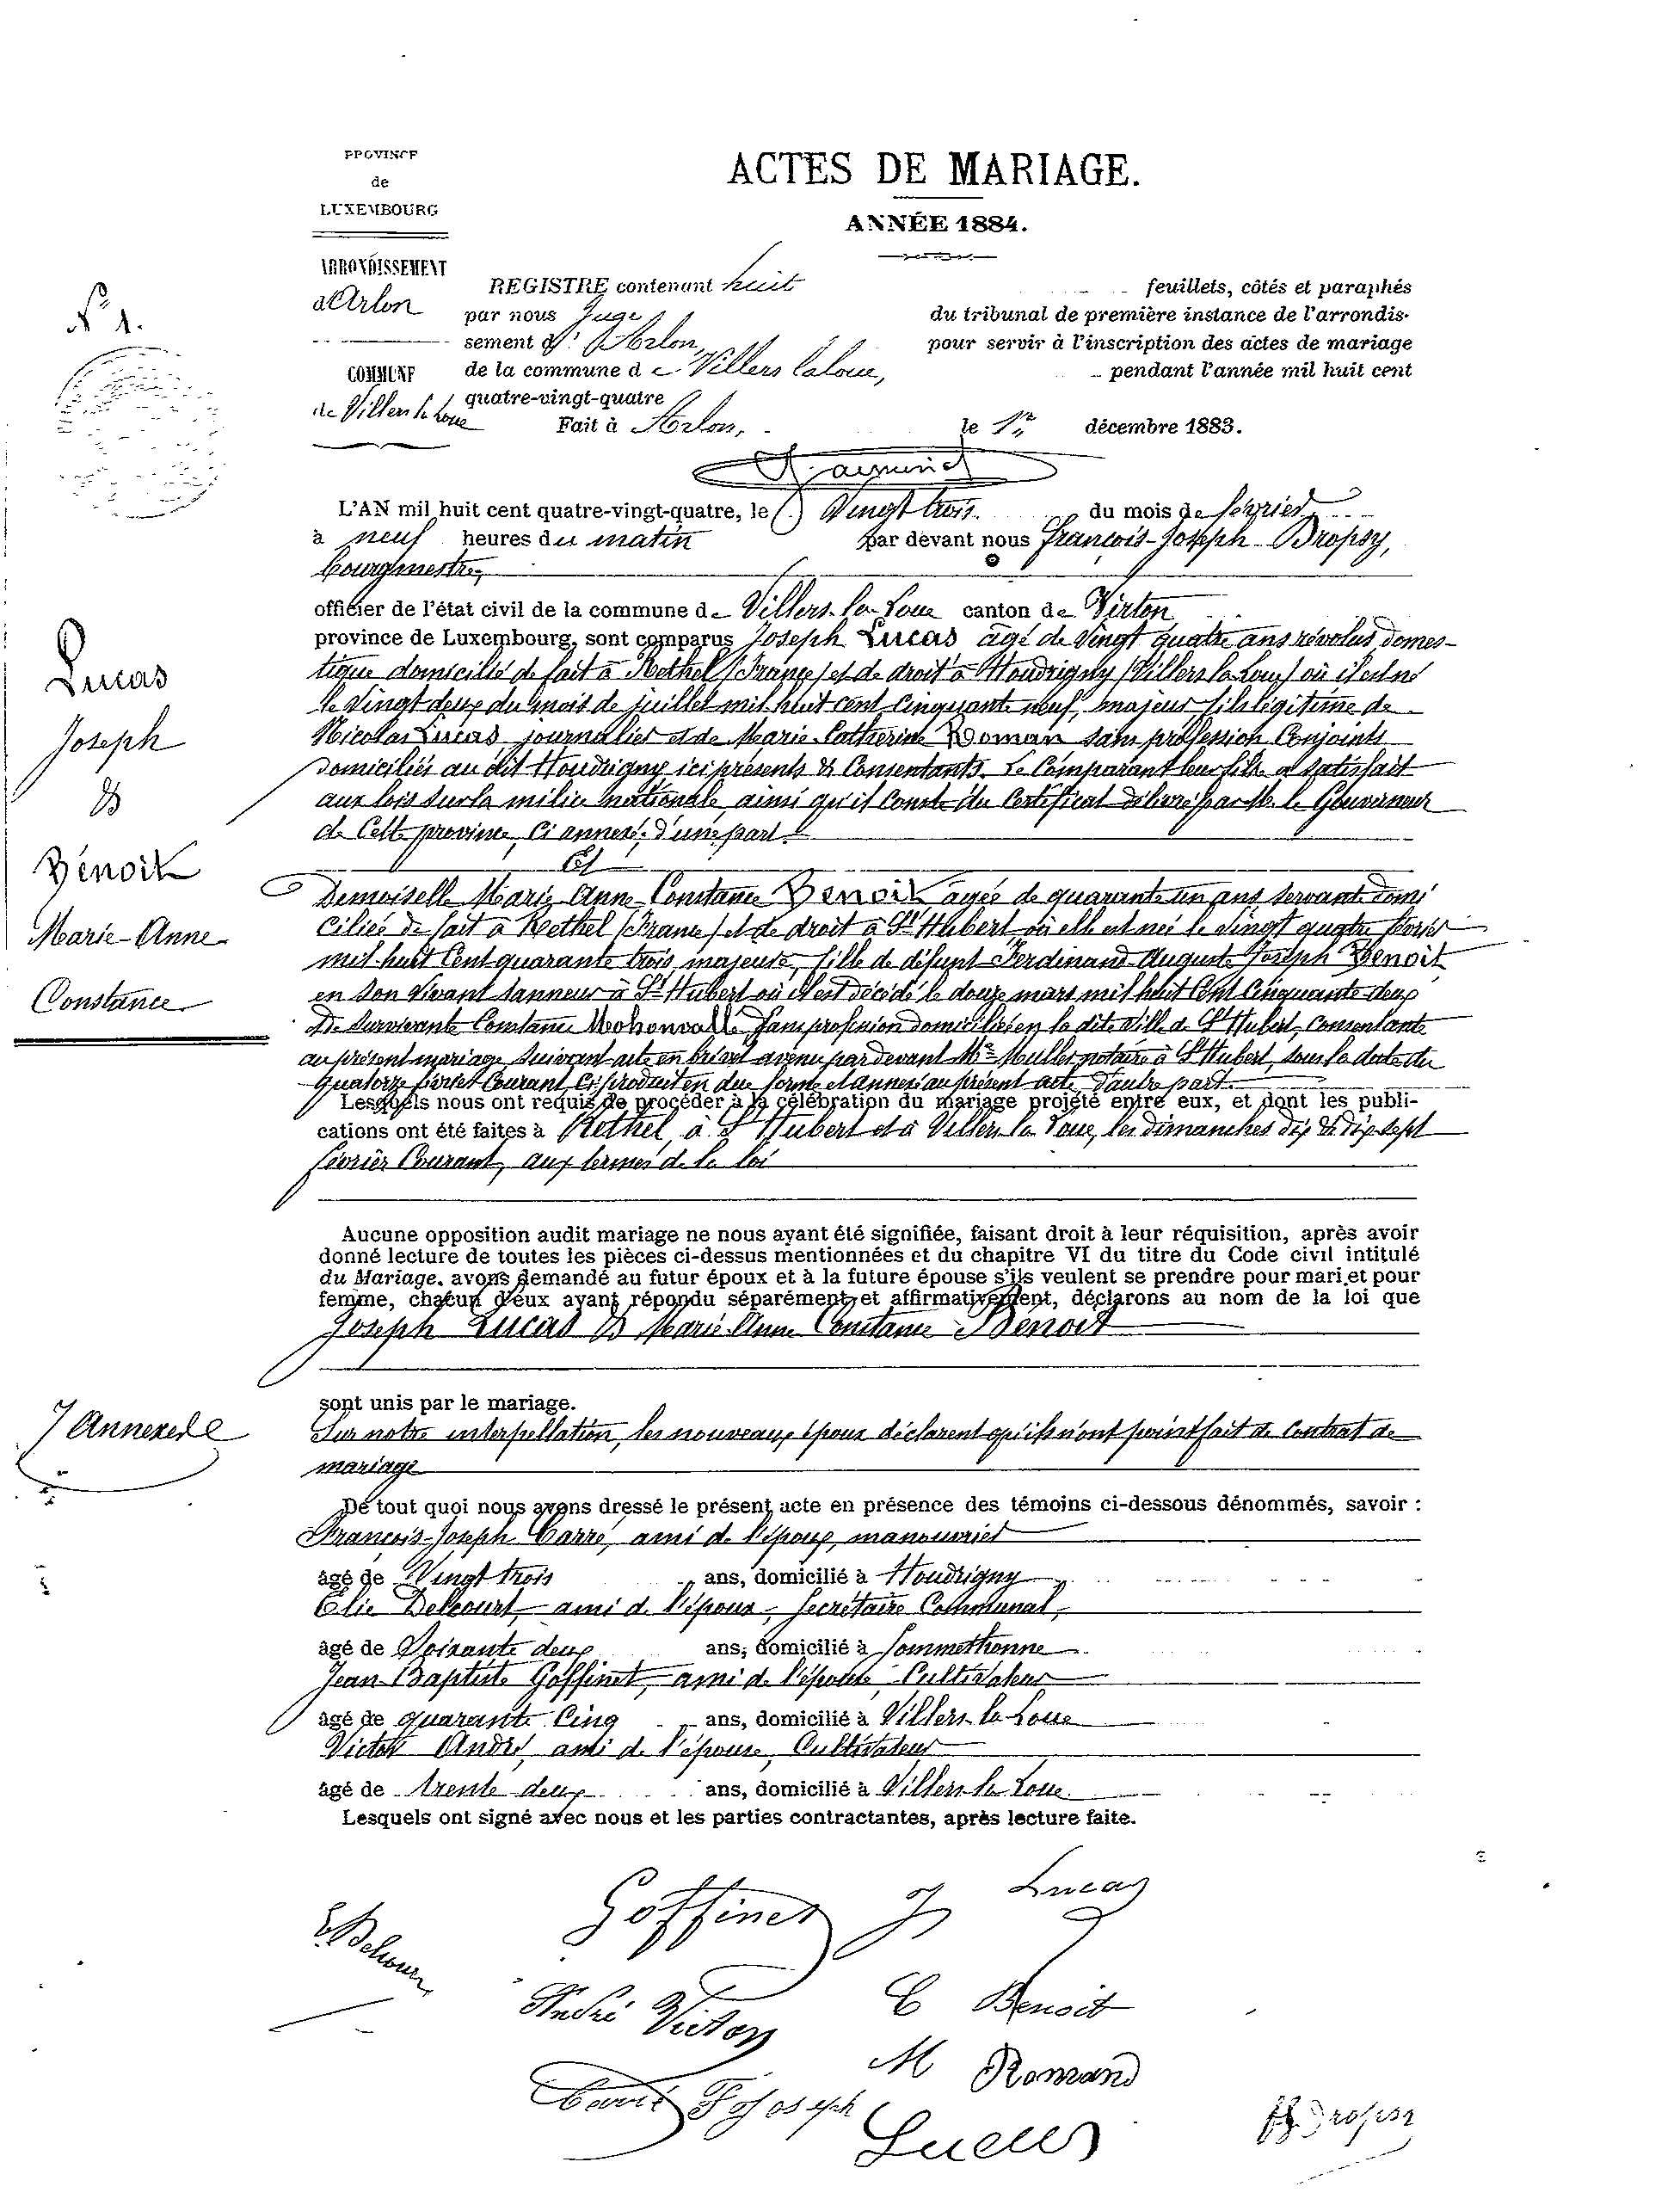 PROVINCE
de
LUXEMBOURG
ARRONDISSEMENT
d'Arlon
COMMUNE
de Villers la Loue
ACTES DE MARIAGE.
ANNÉE 1884.
REGISTRE contenant huit feuillets, côtés et paraphés
par nous Juge du tribunal de première instance de l'arrondis-
sement d' Arlon, pour servir à l'inscription des actes de mariage
de la commune de Villers la loue, pendant l'année mil huit cent
quatre-vingt-quatre
Fait à Arlon, le 1er décembre 1883.
N° 1.
Lucas
Joseph
&
Bénoit
Marie-Anne
Constance
L'AN mil huit cent quatre-vingt-quatre, le Vingt trois du mois de février
à neuf heures du matin par devant nous François-Joseph Dropsy,
bourgmestre,
officier de l'état civil de la commune de Villers-la-Loue canton de Virton
province de Luxembourg, sont comparus Joseph Lucas âgé de Vingt quatre ans révolus, domes-
tique domicilié de fait à Rethel (France) et de droit à Houdrigny (Villers la Loue) où il est né
le Vingt deux du mois de juillet mil huit cent Cinquante neuf, majeur fils légitime de
Nicolas Lucas journalier et de Marie-Catherine Roman sans profession Conjoints
domiciliés au dit Houdrigny ici présents & Consentants. Le Comparant leur fils a satisfait
aux lois sur la milice nationale, ainsi qu'il Conste du Certificat délivré par M. le Gouverneur
de Cette province, Ci annexé; d'une part.
Et
Demoiselle Marie Anne Constance Benoit agée de quarante un ans, servante domi
ciliée de fait à Rethel (France) et de droit à St Hubert où elle est née le Vingt quatre février
mil huit Cent quarante trois, majeure, fille de défunt Ferdinand Auguste Joseph Benoit
en son Vivant tanneur à St Hubert où il est décédé le douze mars mil huit Cent Cinquante deux
De Survivante Constance sans profession domiciliée en la dite Ville de St Hubert, Consentante
au présent mariage suivant acte en brevet avenu par devant Me Muller notaire à St Hubert, sous la date du
quatorze février Courant Ci produit en due forme et annexé au présent acte d'autre part.
Lesquels nous ont requis de procéder à la célébration du mariage projeté entre eux, et dont les publi-
cations ont été faites à Rethel, à St Hubert et à Villers la Loue, les dimanches dix & dix-sept
février Courant, aux termes de la loi
Aucune opposition audit mariage ne nous ayant été signifiée, faisant droit à leur réquisition, après avoir
donné lecture de toutes les pièces ci-dessus mentionnées et du chapitre VI du titre du Code civil intitulé
du Mariage, avons demandé au futur époux et à la future épouse s'ils veulent se prendre pour mari et pour
femme, chacun d'eux ayant répondu séparément et affirmativement, déclarons au nom de la loi que
Joseph Lucas & Marie Anne Constance Benoit
sont unis par le mariage.
7 Annexes
Sur notre interpellation, les nouveaux époux déclarent qu'ils n'ont point fait de Contrat de
mariage
De tout quoi nous avons dressé le présent acte en présence des témoins ci-dessous dénommés, savoir :
François-Joseph Carré, ami de l'époux, manouvrier
âgé de Vingt trois ans, domicilié à Houdrigny
Élie Delcourt, ami de l'époux, Secrétaire Communal,
âgé de Soixante deux ans, domicilié à Sommethonne
Jean-Baptiste Goffinet, ami de l'épouse, Cultivateur
âgé de quarante Cinq ans, domicilié à Villers-la-Loue
Victor André, ami de l'épouse, Cultivateur
âgé de trente deux ans, domicilié à Villers-la-Loue
Lesquels ont signé avec nous et les parties contractantes, après lecture faite.
Goffinet J Lucas
E. Delcourt
André Victor C Benoit
M Romand
Carré F Joseph
Lucas
FJ Dropsy